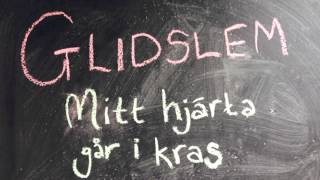 GLIDSLEM
Mitt hjärta
går i kras